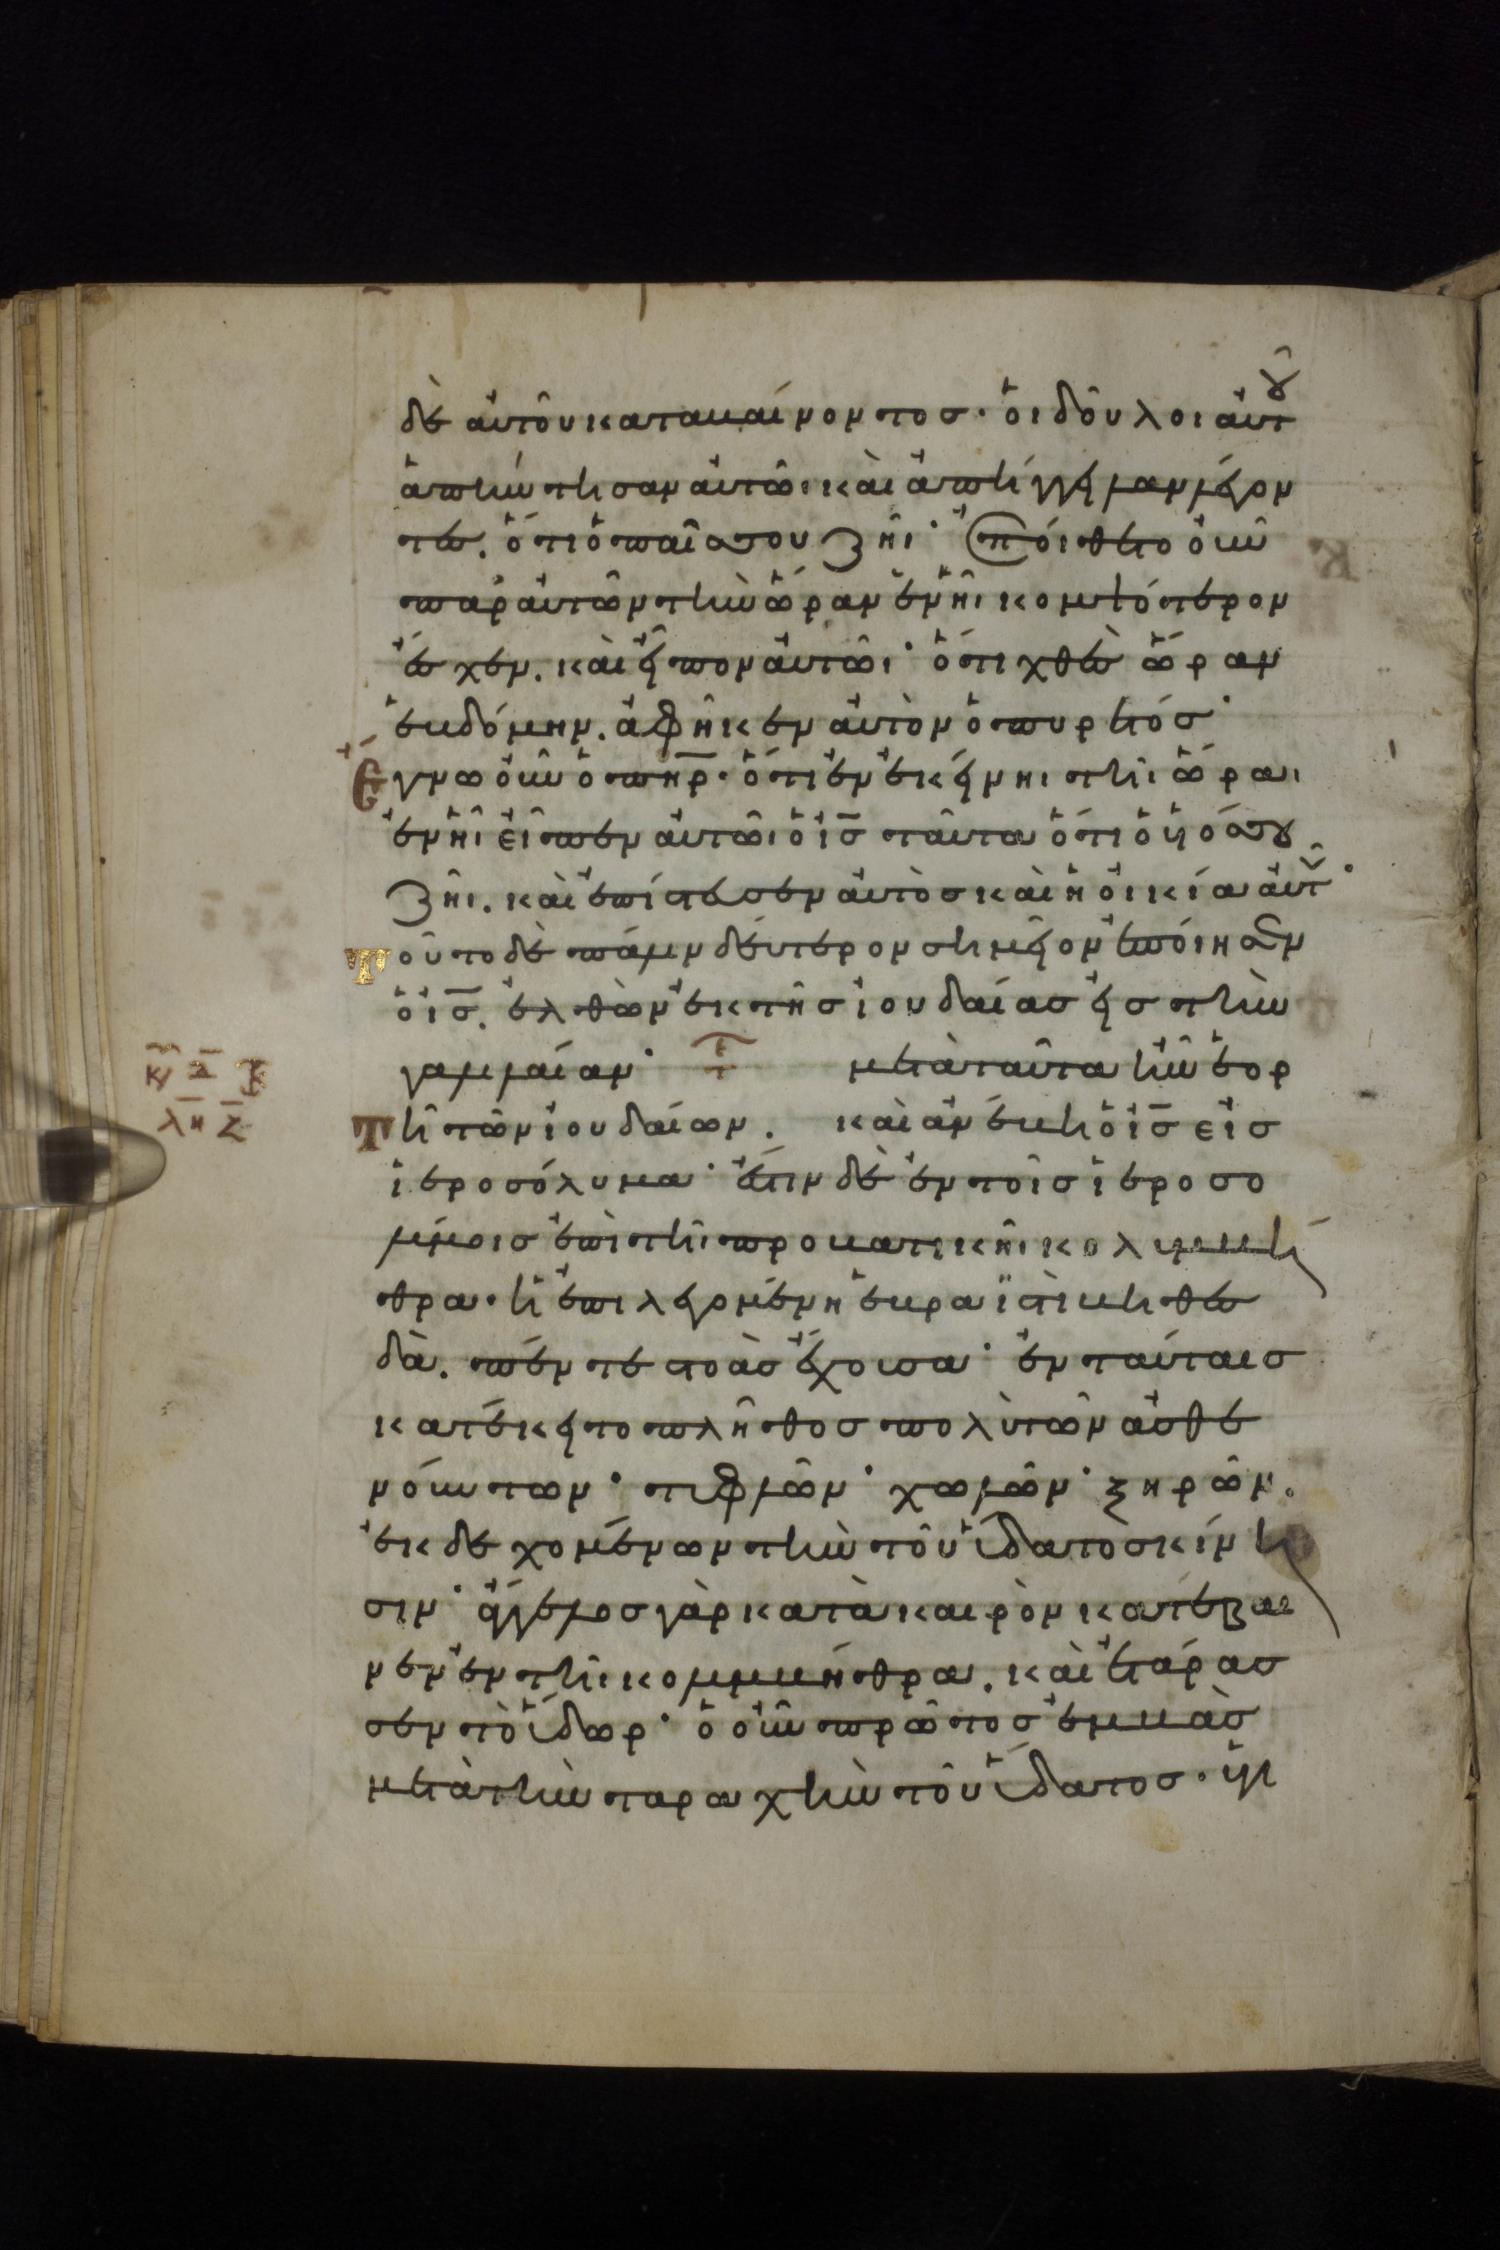 δὲ αὐτοῦ καταβαίνοντοσ· ὁι δοῦλοι αὐτοῦ
ἀπήντησαν αὐτῶι καὶ ἀπήγγειλαν λέγον
τεσ. ὅτι ὁ παῖσ σου ζῆι· ἐπύθετο οὖν
παρ αὐτῶν τὴν ὥραν ἐν ἧι κομψότερον
ἔσχεν. καὶ εἶπον αὐτῶι· ὅτι χθὲσ ὥραν
ἑβδόμην. ἀφῆκεν αὐτὸν ὁ πυρετόσ·
Ἔγνω οὖν ὁ πη̅ρ· ὅτι ἐν ἐκείνηι τῆι ὥραι
ἐν ἧι εἶπεν αὐτῶι ὁ ι̅σ̅ ταῦτα ὅτι ὁ υἱόσ σου
ζῆι. καὶ ἐπίστευσεν αὐτὸσ καὶ ἡ οἰκία αὐτοῦ·
Τοῦτο δὲ πάλιν δεύτερον σημεῖον ἐποίησεν
ὁ ι̅σ̅. ἐλθὼν ἐκ τῆσ ἰουδαίασ εἰσ τὴν
γαλιλαίαν· μετὰ ταῦτα ἦν ἑορ
Τὴ τῶν ἰουδαίων. καὶ ἀνέβη ὁ ι̅σ̅ εἰσ
ἱεροσόλυμα· ἔστιν δὲ ἐν τοῖσ ἱεροσο
λύμοισ ἐπὶ τῆι προβατικῆι κολυμβή
θρα· ἡ ἐπιλεγομένη ἑβραϊστὶ βηθεσ
δὰ. πέντε στοὰσ ἔχουσα· ἐν ταύταισ
κατέκειτο πλῆθοσ πολὺ τῶν ἀσθε
νούντων· τυφλῶν· χωλῶν· ξηρῶν.
ἐκδεχομένων τὴν τοῦ ὕδατοσ κίνη
σιν· ἄγγελοσ γὰρ κατὰ καιρὸν κατέβαι
νεν ἐν τῆι κολυμβήθρα. καὶ ἐτάρασ
σεν τὸ ὕδωρ· ὁ οὖν πρῶτοσ ἐμβὰσ
μετὰ τὴν ταραχὴν τοῦ ὕδατοσ· ὑγι